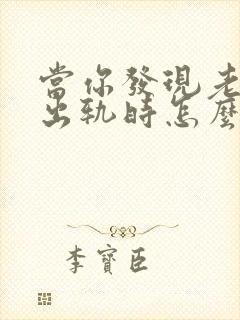 當你發現老
出軌時怎麼
李寶臣